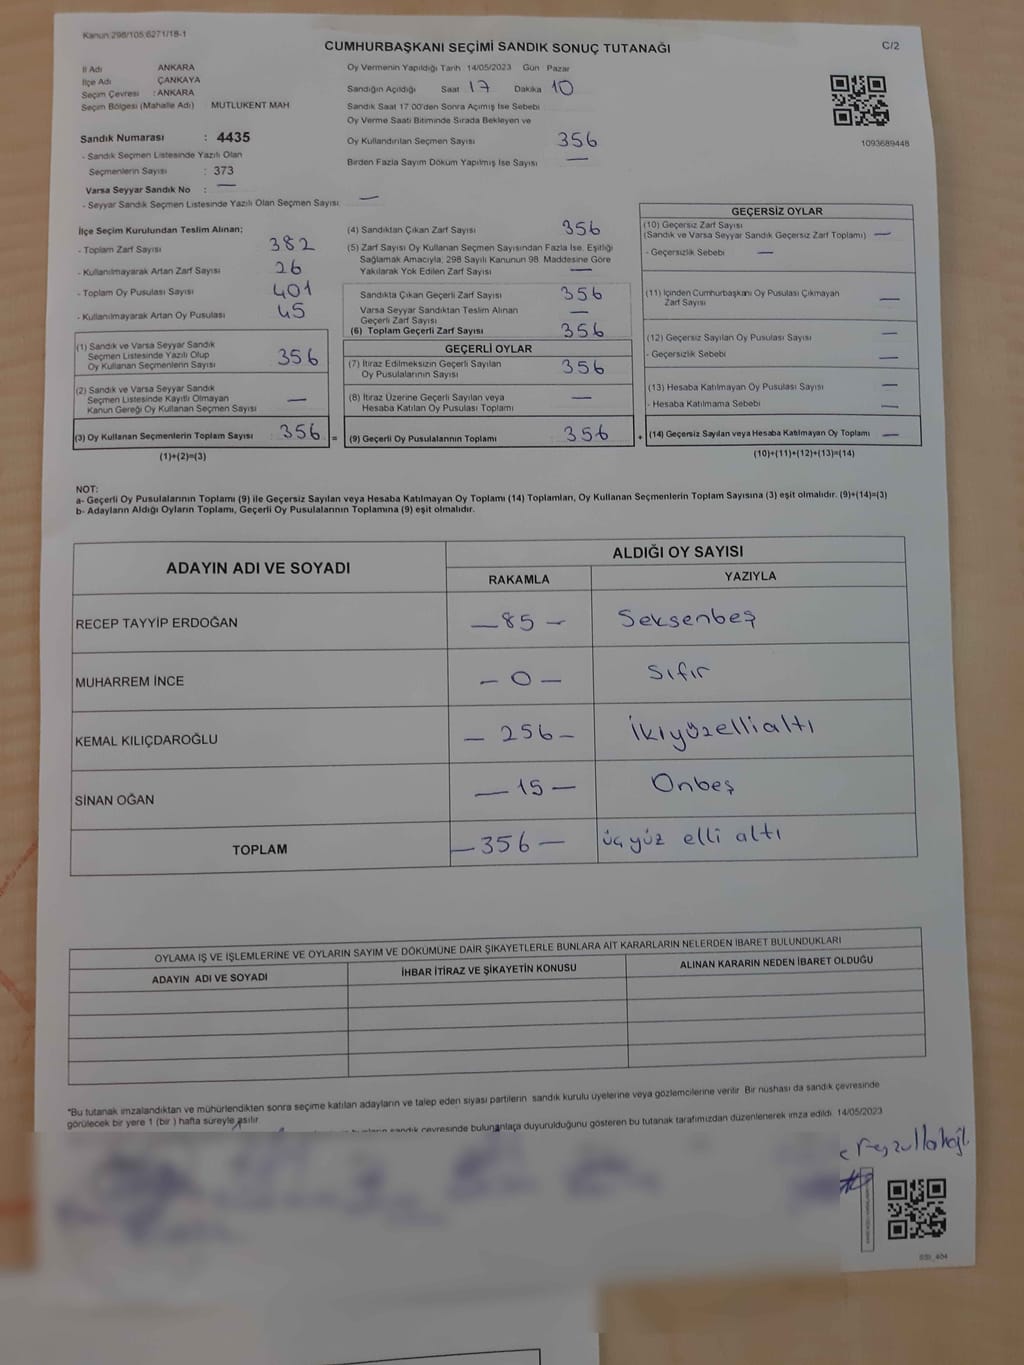 Kanun:298/105;6271/18-1
CUMHURBAŞKANI SEÇİMİ SANDIK SONUÇ TUTANAĞI
C/2
İl Adı ANKARA
İlçe Adı ÇANKAYA
Seçim Çevresi : ANKARA
Seçim Bölgesi (Mahalle Adı) MUTLUKENT MAH
Oy Vermenin Yapıldığı Tarih 14/05/2023 Gün Pazar
Sandığın Açıldığı Saat 17 Dakika 10
Sandık Saat 17 00'den Sonra Açımış İse Sebebi
Oy Verme Saati Bitiminde Sırada Bekleyen ve
Oy Kullandırılan Seçmen Sayısı 356
Birden Fazla Sayım Döküm Yapılmış İse Sayısı —
1093689448
Sandık Numarası : 4435
- Sandık Seçmen Listesinde Yazılı Olan
Seçmenlerin Sayısı : 373
Varsa Seyyar Sandık No : —
- Seyyar Sandık Seçmen Listesinde Yazılı Olan Seçmen Sayısı —
İlçe Seçim Kurulundan Teslim Alınan;
- Toplam Zarf Sayısı 382
- Kullanılmayarak Artan Zarf Sayısı 26
- Toplam Oy Pusulası Sayısı 401
- Kullanılmayarak Artan Oy Pusulası 45
(1) Sandık ve Varsa Seyyar Sandık
Seçmen Listesinde Yazılı Olup
Oy Kullanan Seçmenlerin Sayısı 356
(2) Sandık ve Varsa Seyyar Sandık
Seçmen Listesinde Kayıtlı Olmayan
Kanun Gereği Oy Kullanan Seçmen Sayısı —
(3) Oy Kullanan Seçmenlerin Toplam Sayısı 356 =
(1)+(2)=(3)
(4) Sandıktan Çıkan Zarf Sayısı 356
(5) Zarf Sayısı Oy Kullanan Seçmen Sayısından Fazla İse, Eşitliği
Sağlamak Amacıyla, 298 Sayılı Kanunun 98. Maddesine Göre
Yakılarak Yok Edilen Zarf Sayısı —
Sandıkta Çıkan Geçerli Zarf Sayısı 356
Varsa Seyyar Sandıktan Teslim Alınan
Geçerli Zarf Sayısı —
(6) Toplam Geçerli Zarf Sayısı 356
GEÇERLİ OYLAR
(7) İtiraz Edilmeksizin Geçerli Sayılan
Oy Pusulalarının Sayısı 356
(8) İtiraz Üzerine Geçerli Sayılan veya
Hesaba Katılan Oy Pusulası Toplamı —
(9) Geçerli Oy Pusulalarının Toplamı 356 +
GEÇERSİZ OYLAR
(10) Geçersiz Zarf Sayısı
(Sandık ve Varsa Seyyar Sandık Geçersiz Zarf Toplamı) —
- Geçersizlik Sebebi —
(11) İçinden Cumhurbaşkanı Oy Pusulası Çıkmayan
Zarf Sayısı —
(12) Geçersiz Sayılan Oy Pusulası Sayısı —
- Geçersizlik Sebebi —
(13) Hesaba Katılmayan Oy Pusulası Sayısı —
- Hesaba Katılmama Sebebi —
(14) Geçersiz Sayılan veya Hesaba Katılmayan Oy Toplamı —
(10)+(11)+(12)+(13)=(14)
NOT:
a- Geçerli Oy Pusulalarının Toplamı (9) ile Geçersiz Sayılan veya Hesaba Katılmayan Oy Toplamı (14) Toplamları, Oy Kullanan Seçmenlerin Toplam Sayısına (3) eşit olmalıdır. (9)+(14)=(3)
b- Adayların Aldığı Oyların Toplamı, Geçerli Oy Pusulalarının Toplamına (9) eşit olmalıdır.
ADAYIN ADI VE SOYADI
ALDIĞI OY SAYISI
RAKAMLA YAZIYLA
RECEP TAYYİP ERDOĞAN — 85 — Seksenbeş
MUHARREM İNCE — 0 — Sıfır
KEMAL KILIÇDAROĞLU — 256 — İkiyüzellialtı
SİNAN OĞAN — 15 — Onbeş
TOPLAM — 356 — üçyüz elli altı
OYLAMA İŞ VE İŞLEMLERİNE VE OYLARIN SAYIM VE DÖKÜMÜNE DAİR ŞİKAYETLERLE BUNLARA AİT KARARLARIN NELERDEN İBARET BULUNDUKLARI
ADAYIN ADI VE SOYADI İHBAR İTİRAZ VE ŞİKAYETİN KONUSU ALINAN KARARIN NEDEN İBARET OLDUĞU
*Bu tutanak imzalandıktan ve mühürlendikten sonra seçime katılan adayların ve talep eden siyasi partilerin sandık kurulu üyelerine veya gözlemcilerine verilir. Bir nüshası da sandık çevresinde
görülecek bir yere 1 (bir ) hafta süreyle asılır.
sandık çevresinde bulunanlaça duyurulduğunu gösteren bu tutanak tarafımızdan düzenlenerek imza edildi. 14/05/2023